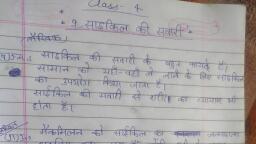 Class - 4
9 साइकिल की सवारी
मौखिक
साइकिल की सवारी के बहुत फायदे हैं।
सामान को यहाँ-वहाँ ले जाने के लिए साइकिल
का उपयोग किया जाता है।
साइकिल की सवारी से शरीर का व्यायाम भी
होता है।
मैकमिलन को साइकिल का जन्मदाता